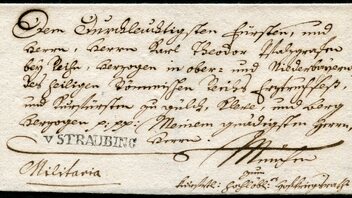 Dem Durchleuchtigsten Fürsten, und
Herrn, Herrn Karl Theodor Pfalzgrafen
bey Rhein, Herzogen in ober- und Niederbaiern
des heiligen Römischen Reichs
und Kurfürsten zu gülich, Kleve, und Berg
Herzogen p: pp: Meinem gnädigsten Herrn,
Herrn
V STRAUBING
München
Militaria
zum